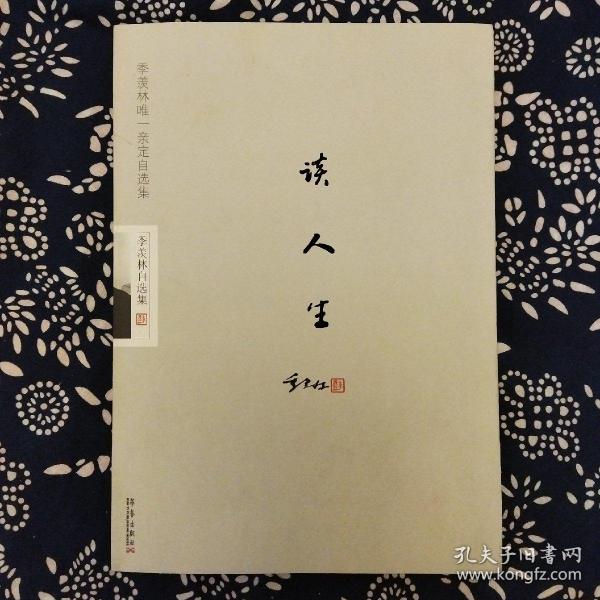 季羡林唯一亲定自选集
季羡林自选集
谈人生
季羡林
华艺出版社
孔夫子旧书网
www.kongfz.com